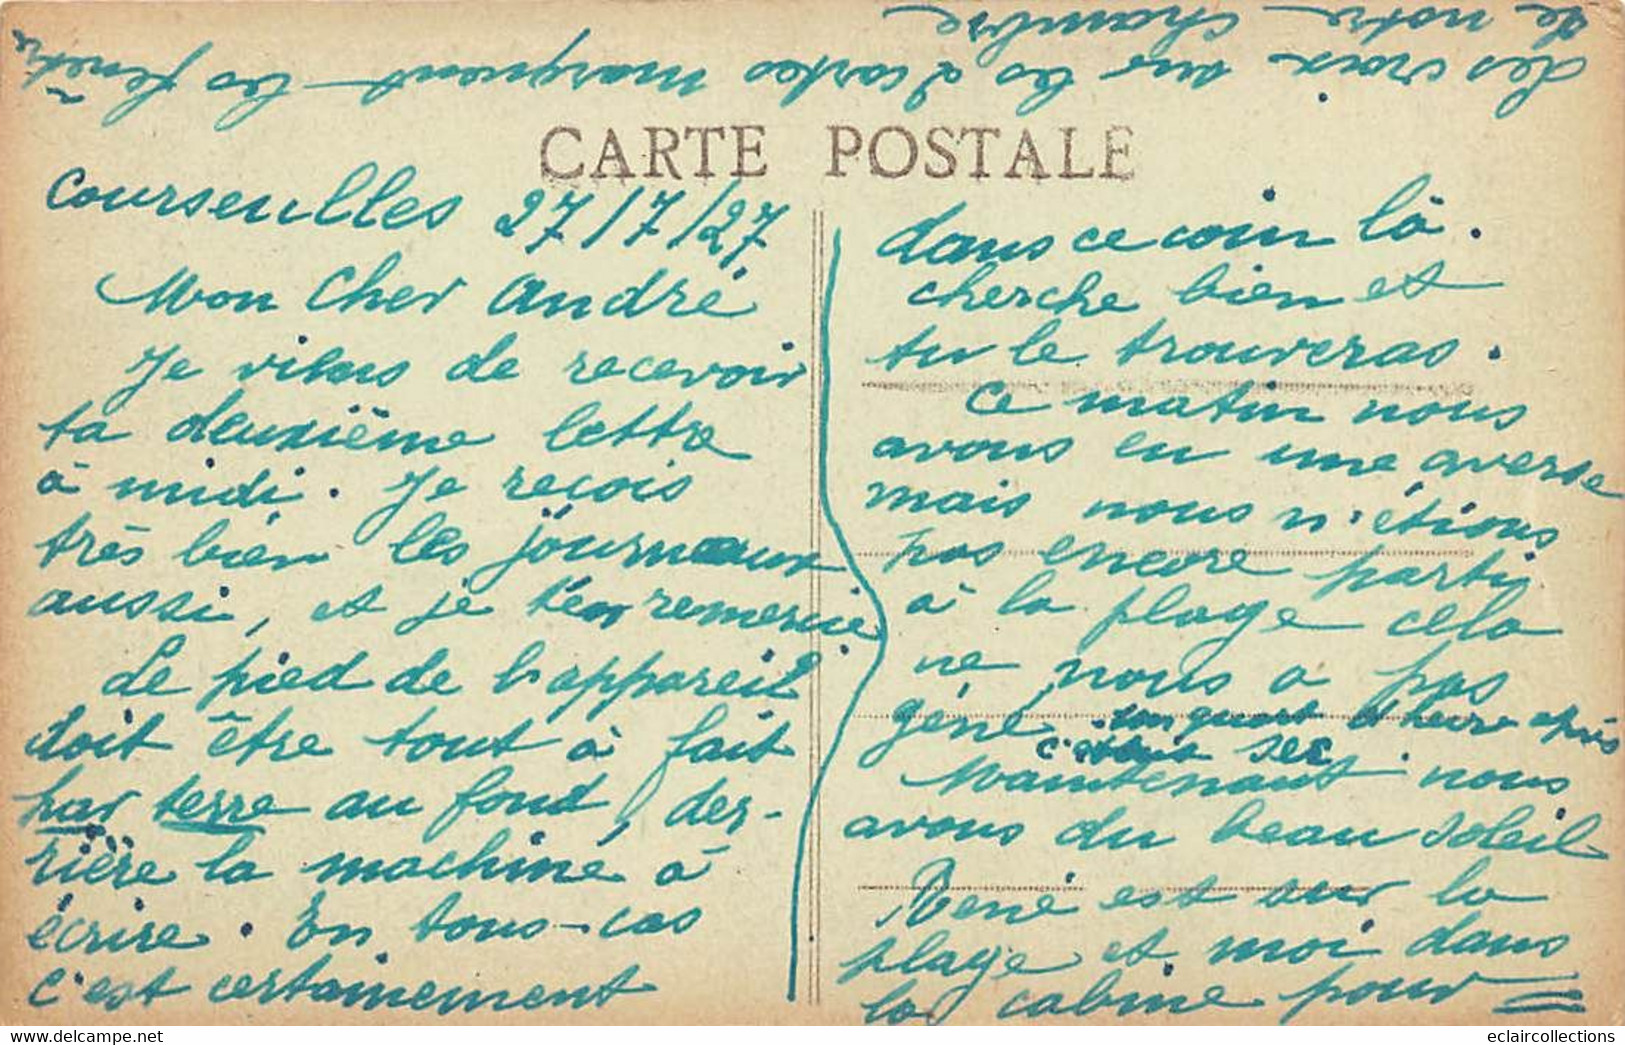 Les croix sur les 2 cartes marquent les fenêtres
de notre chambre
CARTE POSTALE
Courseulles 27/7/27
Mon cher André
Je viens de recevoir
ta deuxième lettre
à midi. Je reçois
très bien les journaux
aussi, et je t'en remercie
Le pied de l'appareil
doit être tout à fait
par terre au fond, der-
rière la machine à
écrire. En tous-cas
c'est certainement
dans ce coin là.
cherche bien et
tu le trouveras.
Ce matin nous
avons eu une averse
mais nous n'étions
pas encore partis
à la plage cela
ne nous a pas
géné, un quart d'heure après
c'était sec.
Maintenant nous
avons du beau soleil
René est sur la
plage et moi dans
la cabine pour
eclaircollections